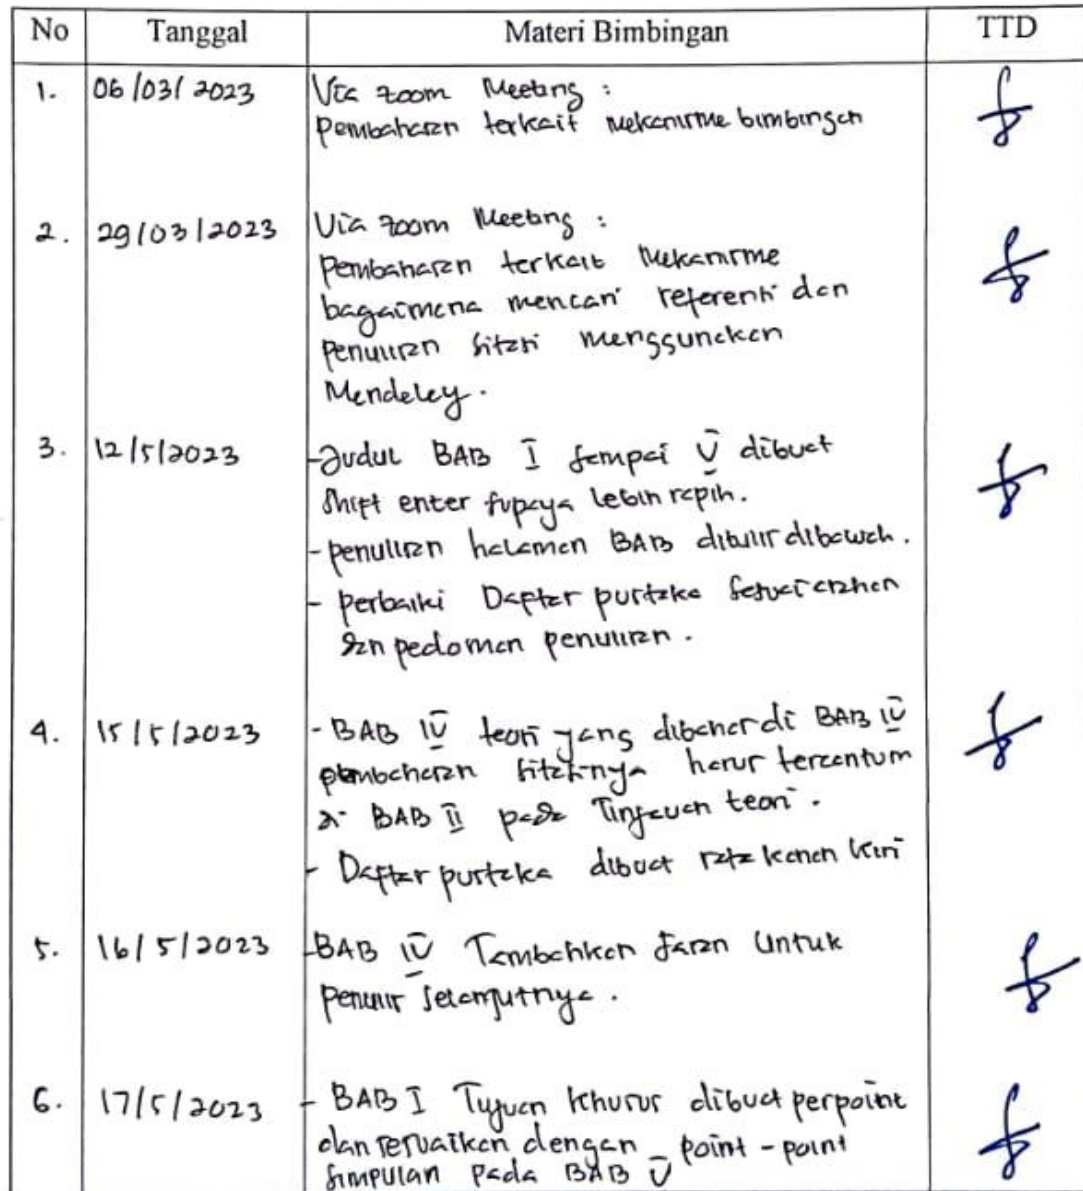 No Tanggal Materi Bimbingan TTD
1. 06/03/2023 Via zoom Meeting :
Pembahasan terkait mekanisme bimbingan
2. 29/03/2023 Via zoom Meeting :
Pembahasan terkait Mekanisme
bagaimana mencari referensi dan
Penulisan sitasi menggunakan
Mendeley.
3. 12/5/2023 - Judul BAB I sampai V dibuat
Shift enter supaya lebih rapih.
- penulisan halaman BAB ditulis dibawah.
- perbaiki Daftar pustaka sesuai arahan
dan pedoman penulisan.
4. 15/5/2023 - BAB IV teori yang dibahas di BAB IV
pembahasan sitasinya harus tercantum
di BAB II pada Tinjauan teori.
- Daftar pustaka dibuat rata kanan kiri
5. 16/5/2023 - BAB IV Tambahkan saran Untuk
Penulis selanjutnya.
6. 17/5/2023 - BAB I Tujuan khusus dibuat perpoint
dan sesuaikan dengan point - point
simpulan pada BAB V